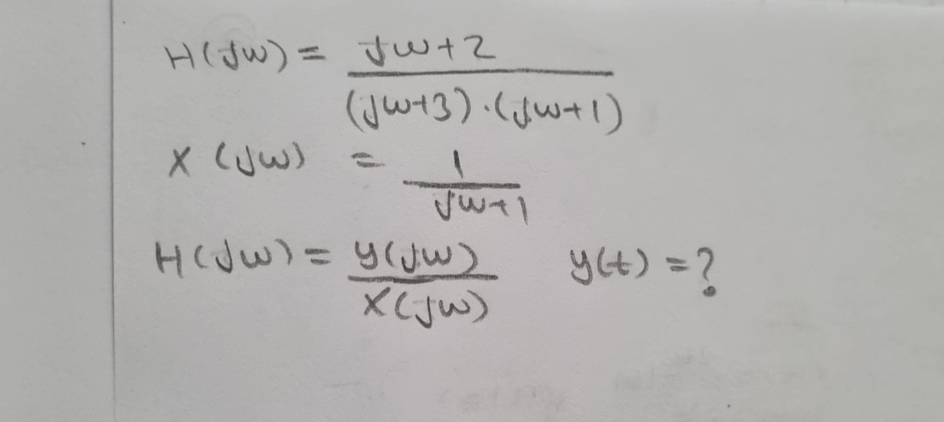 H(jw) = jw+2
(jw+3).(jw+1)
X(jw) = 1
jw+1
H(jw) = y(jw) y(t) =?
X(jw)